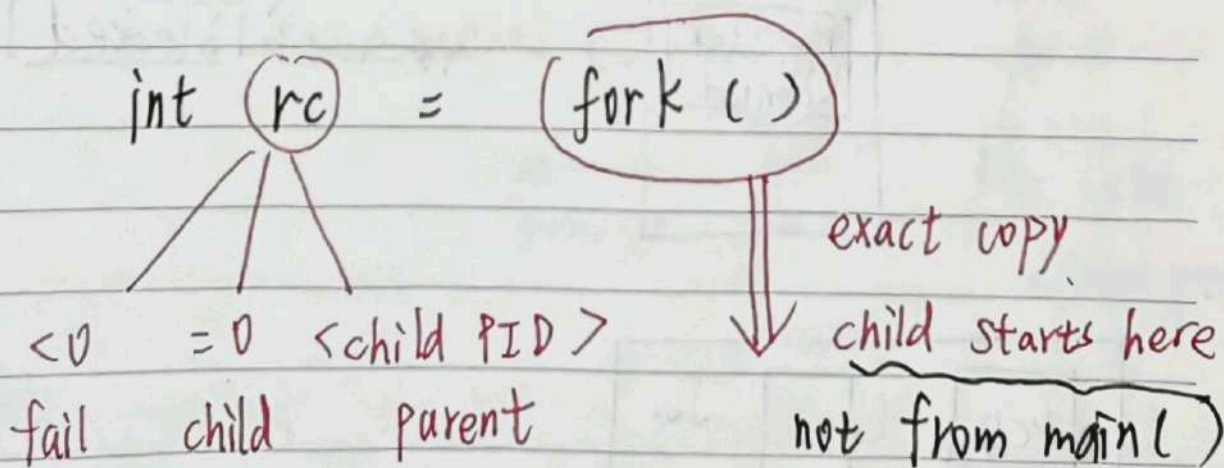 int rc = fork ()
exact copy.
<0 =0 <child PID> child starts here
fail child parent not from main()